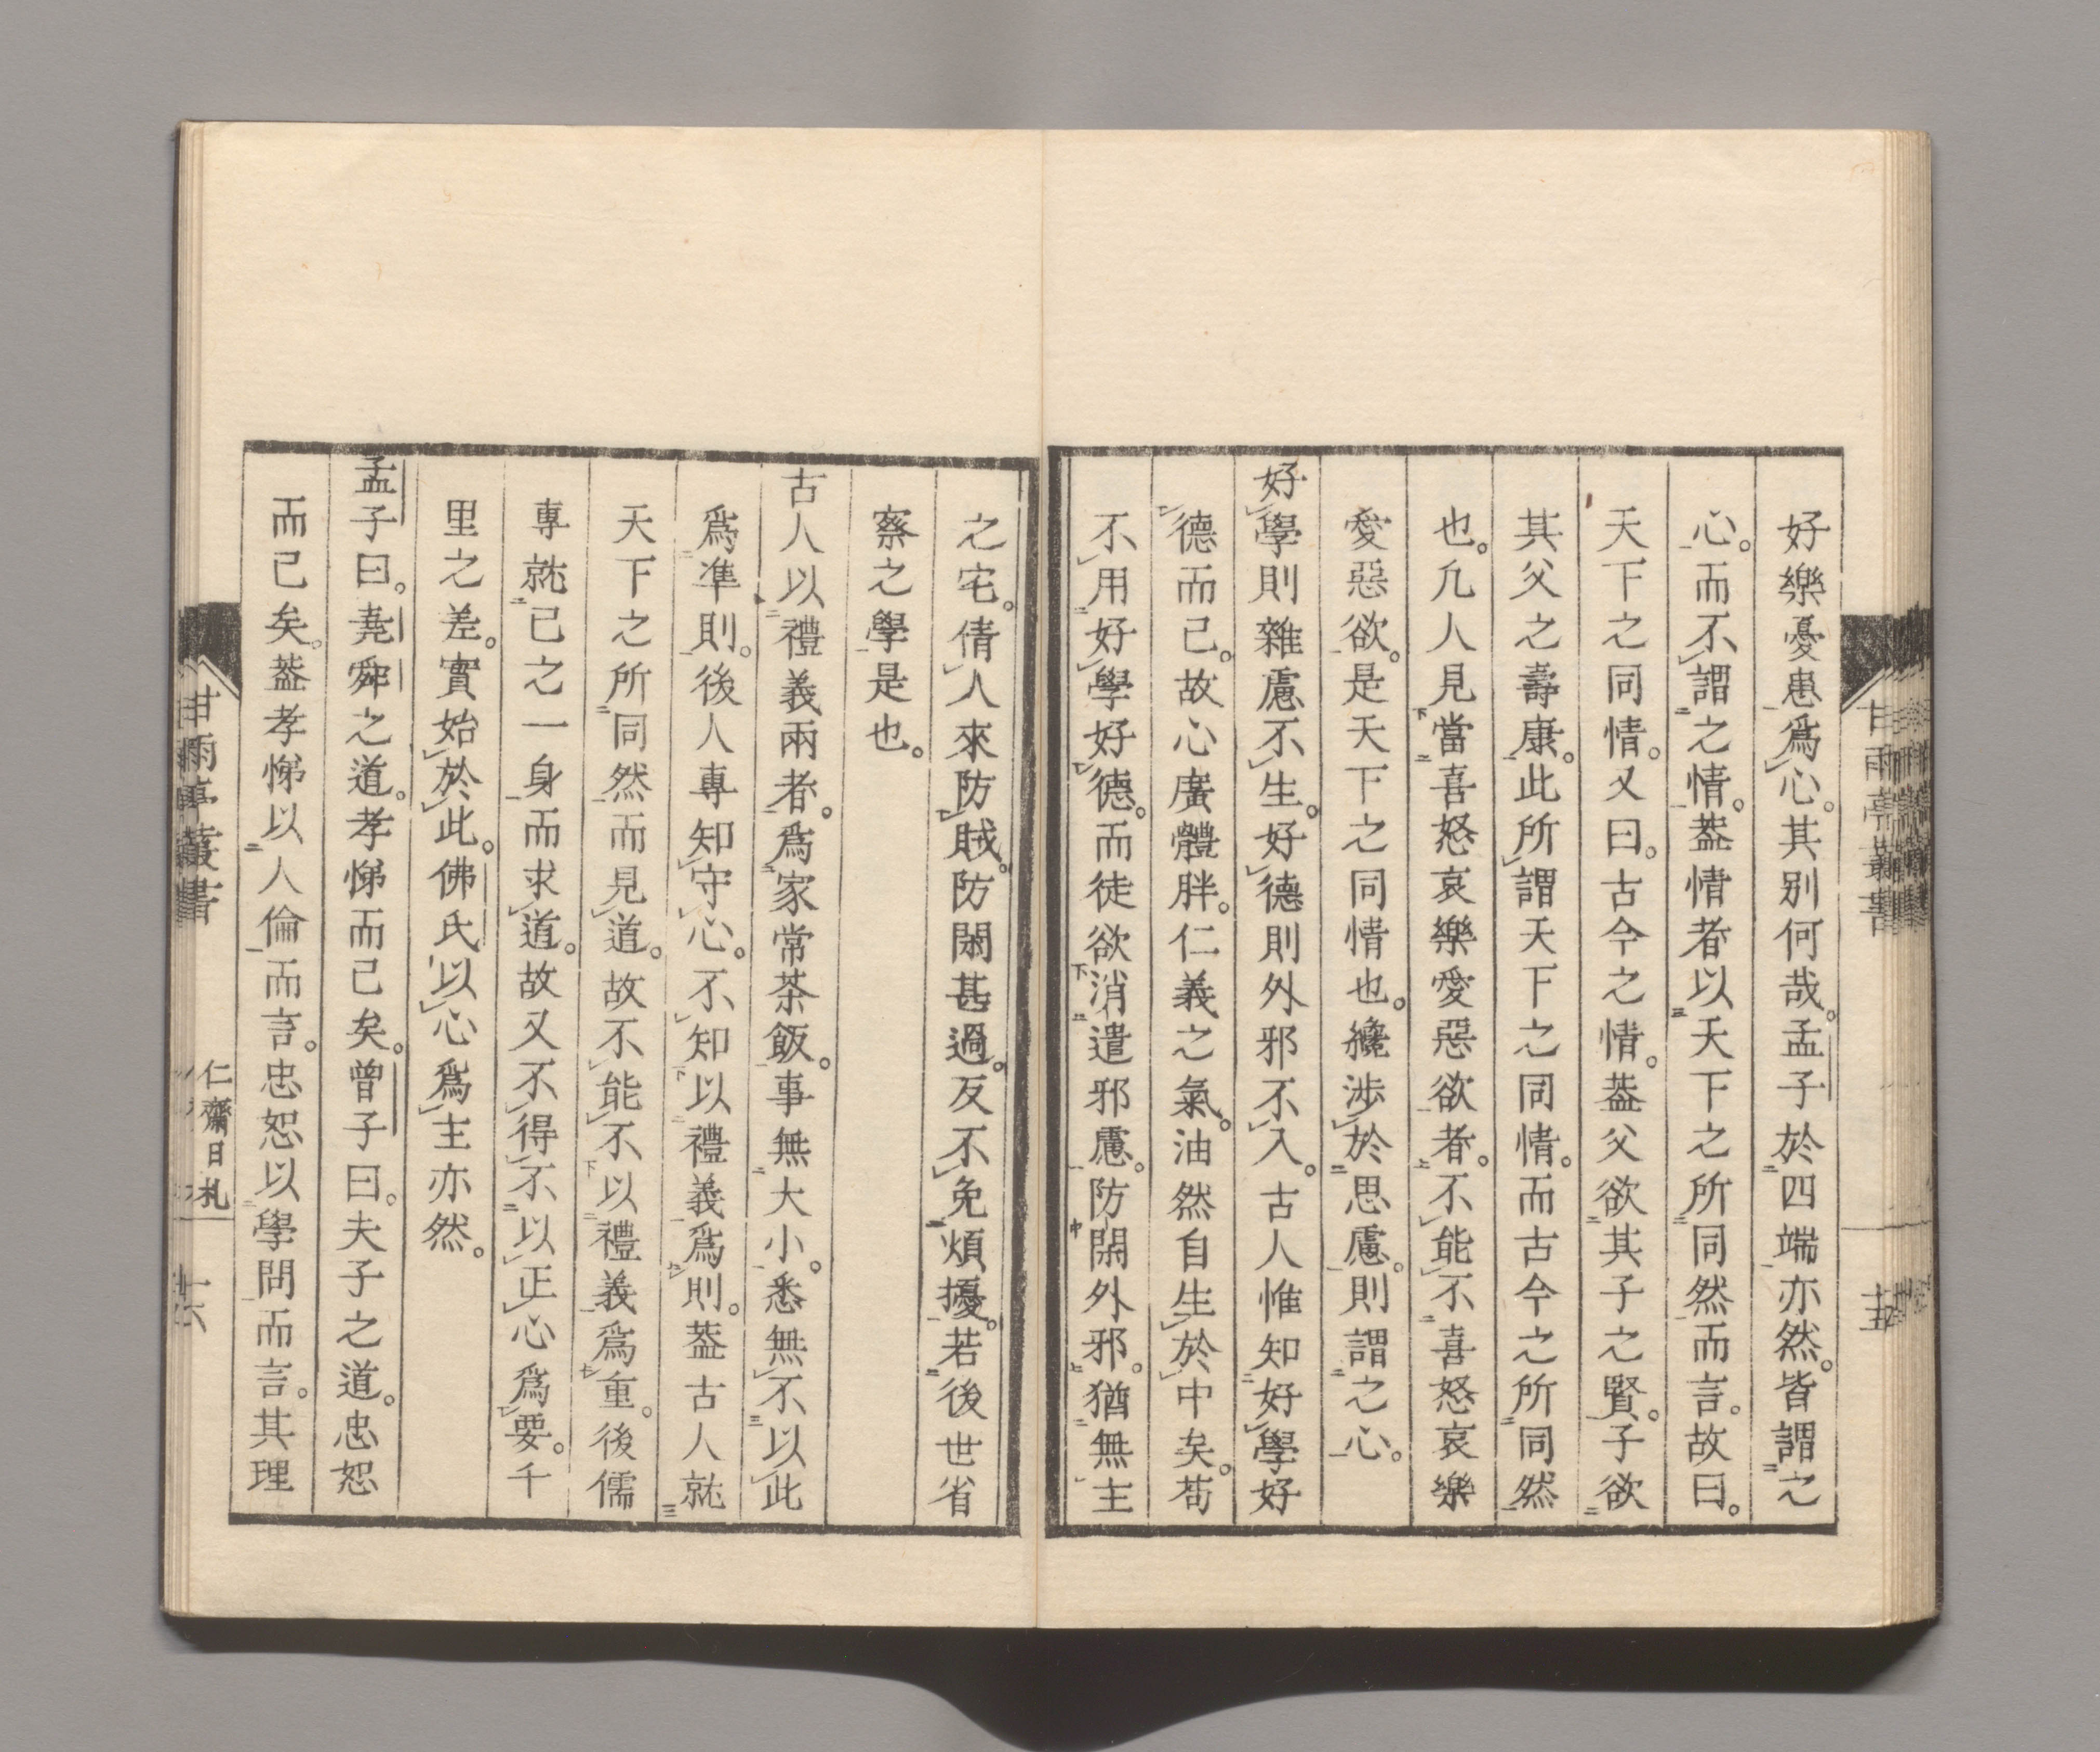 好樂憂患爲心。其別何哉。孟子於四端亦然。皆謂之
心。而不謂之情。葢情者以天下之所同然而言。故曰。
天下之同情。又曰。古今之情。葢父欲其子之賢。子欲
其父之壽康。此所謂天下之同情。而古今之所同然
也。凢人見當喜怒哀樂愛惡欲者。不能不喜怒哀樂
愛惡欲。是天下之同情也。纔涉於思慮。則謂之心。
好學則雜慮不生。好德則外邪不入。古人惟知好學好
德而已。故心廣體胖。仁義之氣。油然自生於中矣。苟
不用好學好德。而徒欲消遣邪慮。防閑外邪。猶無主
之宅。倩人來防賊。防閑甚過。反不免煩擾。若後世省
察之學是也。
古人以禮義兩者。爲家常茶飯。事無大小。悉無不以此
爲準則。後人專知守心。不知以禮義爲則。葢古人就
天下之所同然而見道。故不能不以禮義爲重。後儒
專就己之一身而求道。故又不得不以正心爲要。千
里之差。實始於此。佛氏以心爲主亦然。
孟子曰。堯舜之道。孝悌而已矣。曾子曰。夫子之道。忠恕
而已矣。葢孝悌以人倫而言。忠恕以學問而言。其理
甘雨亭叢書
仁齋日札
十六
甘雨亭叢書
十五